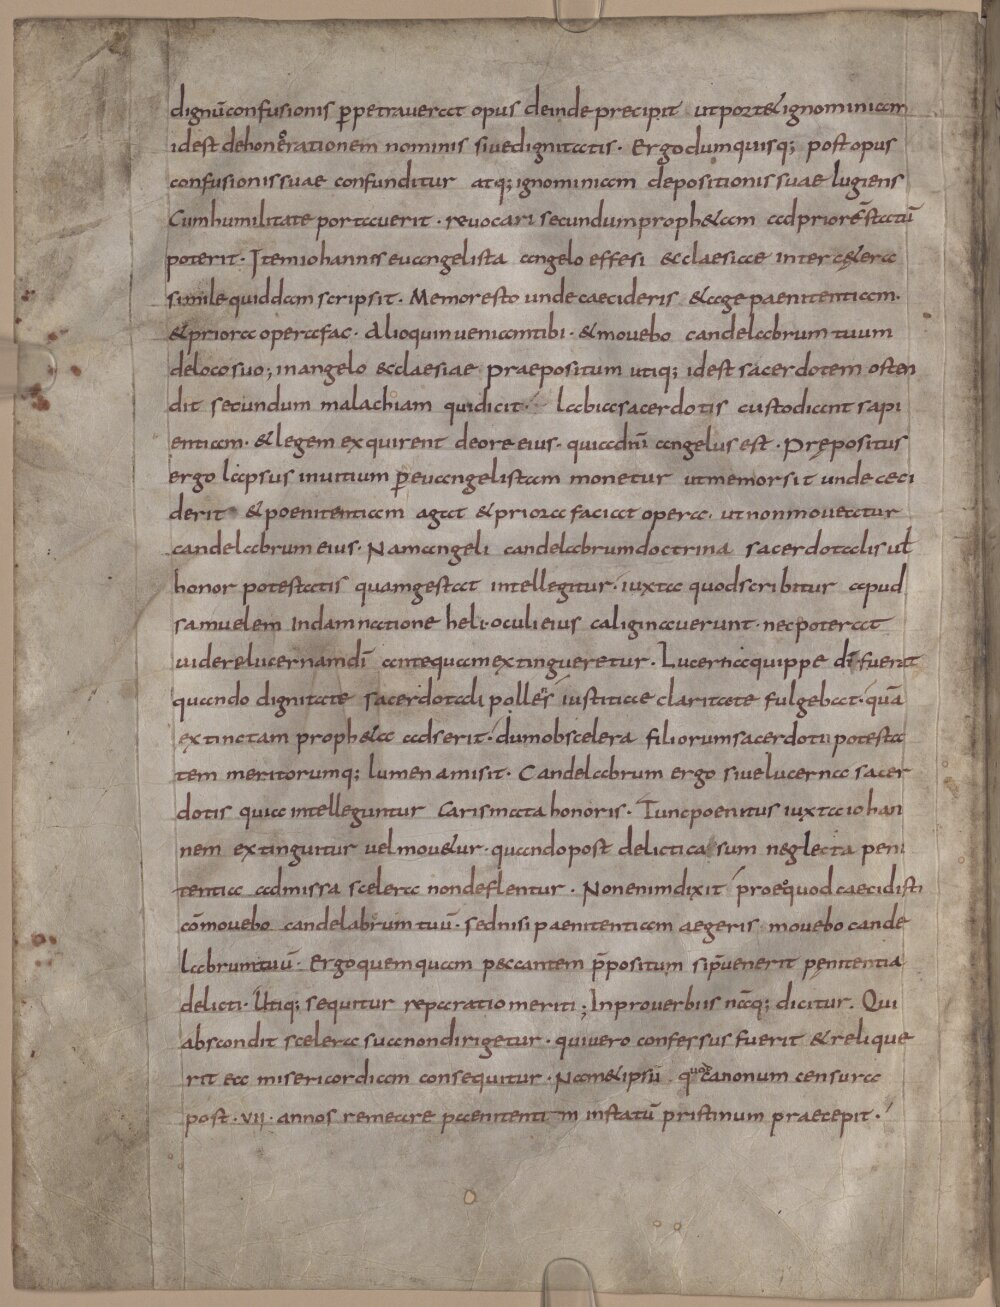 dignū confusionis ꝑpetraverat opus deinde precipit ut port& ignominiam
id est dehonerationem nominis sive dignitatis · Ergo dum quisq; post opus
confusionis suae confunditur atq; ignominiam depositionis suae lugens
Cum humilitate portaverit · revocari secundum proph&am ad priorē statū
poterit · Item iohannes euangelista angelo effesi ecclaesiae inter c&era
simile quiddam scripsit · Memor esto unde caecideris & age paenitentiam ·
& priora opera fac · Alioquin veniam tibi · & movebo candelabrum tuum
de loco suo; in angelo ecclaesiae praepositum utiq; id est sacerdotem osten
dit secundum malachiam qui dicit · labia sacerdotis custodiant sapi
entiam · & legem exquirent de ore eius · quia dn̄i angelus est · Prępositus
ergo lapsus in vitium ꝑ euangelistam monetur ut memor sit unde ceci
derit & poenitentiam agat & priora faciat opera · ut non moveatur
candelabrum eius · Nam angeli candelabrum doctrina sacerdotalis vł
honor potestatis quam gestat intellegitur · iuxta quod scribitur apud
samuelem In damnatione heli · oculi eius caliginaverunt · nec poterat
videre lucernam dī antequam extingueretur · Lucerna quippe dī fuerat
quando dignitate sacerdotali pollens iustitiae claritate fulgebat · quā
extinctam proph&a adserit · dum ob scelera filiorum sacerdotii potesta
tem meritorumq; lumen amisit · Candelabrum ergo sive lucerna sacer
dotis quia intelleguntur Carismata honoris · Tunc poenitus iuxta iohan
nem extinguitur vel mov&ur · quando post delicti casum neglecta peni
tentia admissa scelera non deflentur · Non enim dixit pro eo quod caecidisti
cōmovebo candelabrum tuū · sed nisi paenitentiam aegeris movebo cande
labrum tuū · Ergo quemquam peccantem p̄positum si p̄venerit pęnitentia
delicti · Utiq; sequitur reparatio meriti; In proverbiis naq; dicitur. Qui
abscondit scelera sua non dirigetur · qui vero confessus fuerit & relique
rit ea misericordiam consequitur · Nam & ipsū quoq canonum censura
post · vii · annos remeare paenitentem in statū pristinum praecepit ·